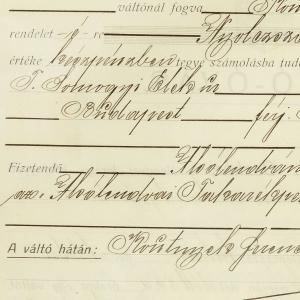 váltónál fogva
rendelet -é- re Nyolcszáz
értéke készpénzben tegye számolásba tud
T. Somogyi Elek úr
Budapest férj.
Fizetendő Alsólendván
az Alsólendvai Takarékpé
A váltó hátán: